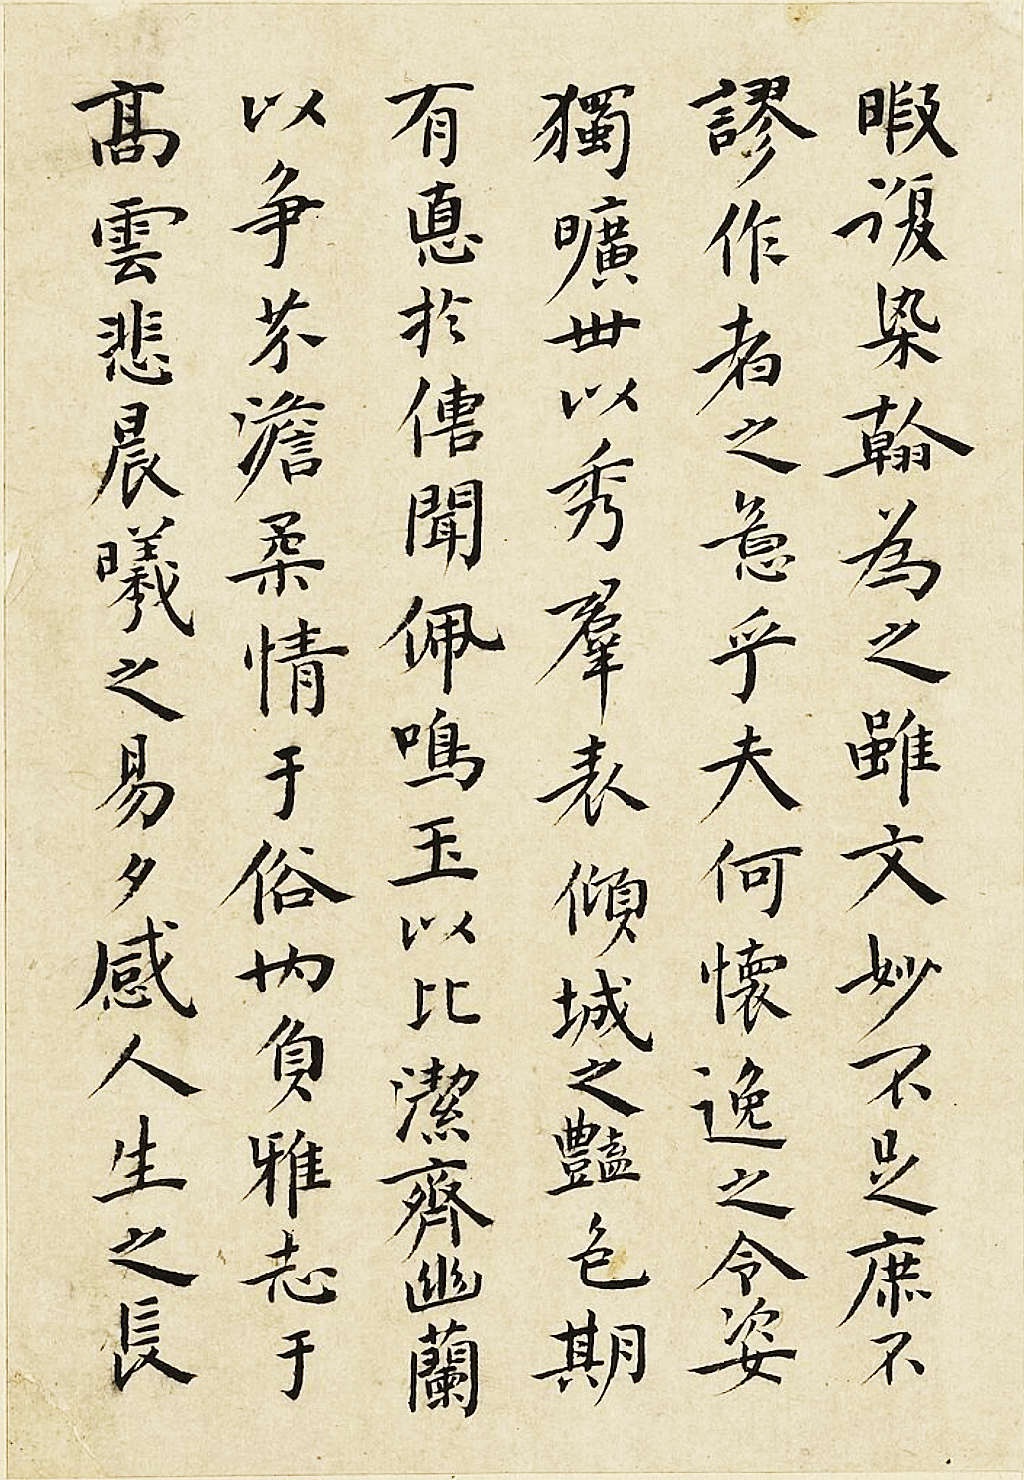 暇復染翰為之雖文妙不足庶不
謬作者之意乎夫何懷逸之令姿
獨曠世以秀羣表傾城之豔色期
有悳於傳聞佩鳴玉以比潔齊幽蘭
以争芬澹柔情于俗內負雅志于
髙雲悲晨曦之易夕感人生之長